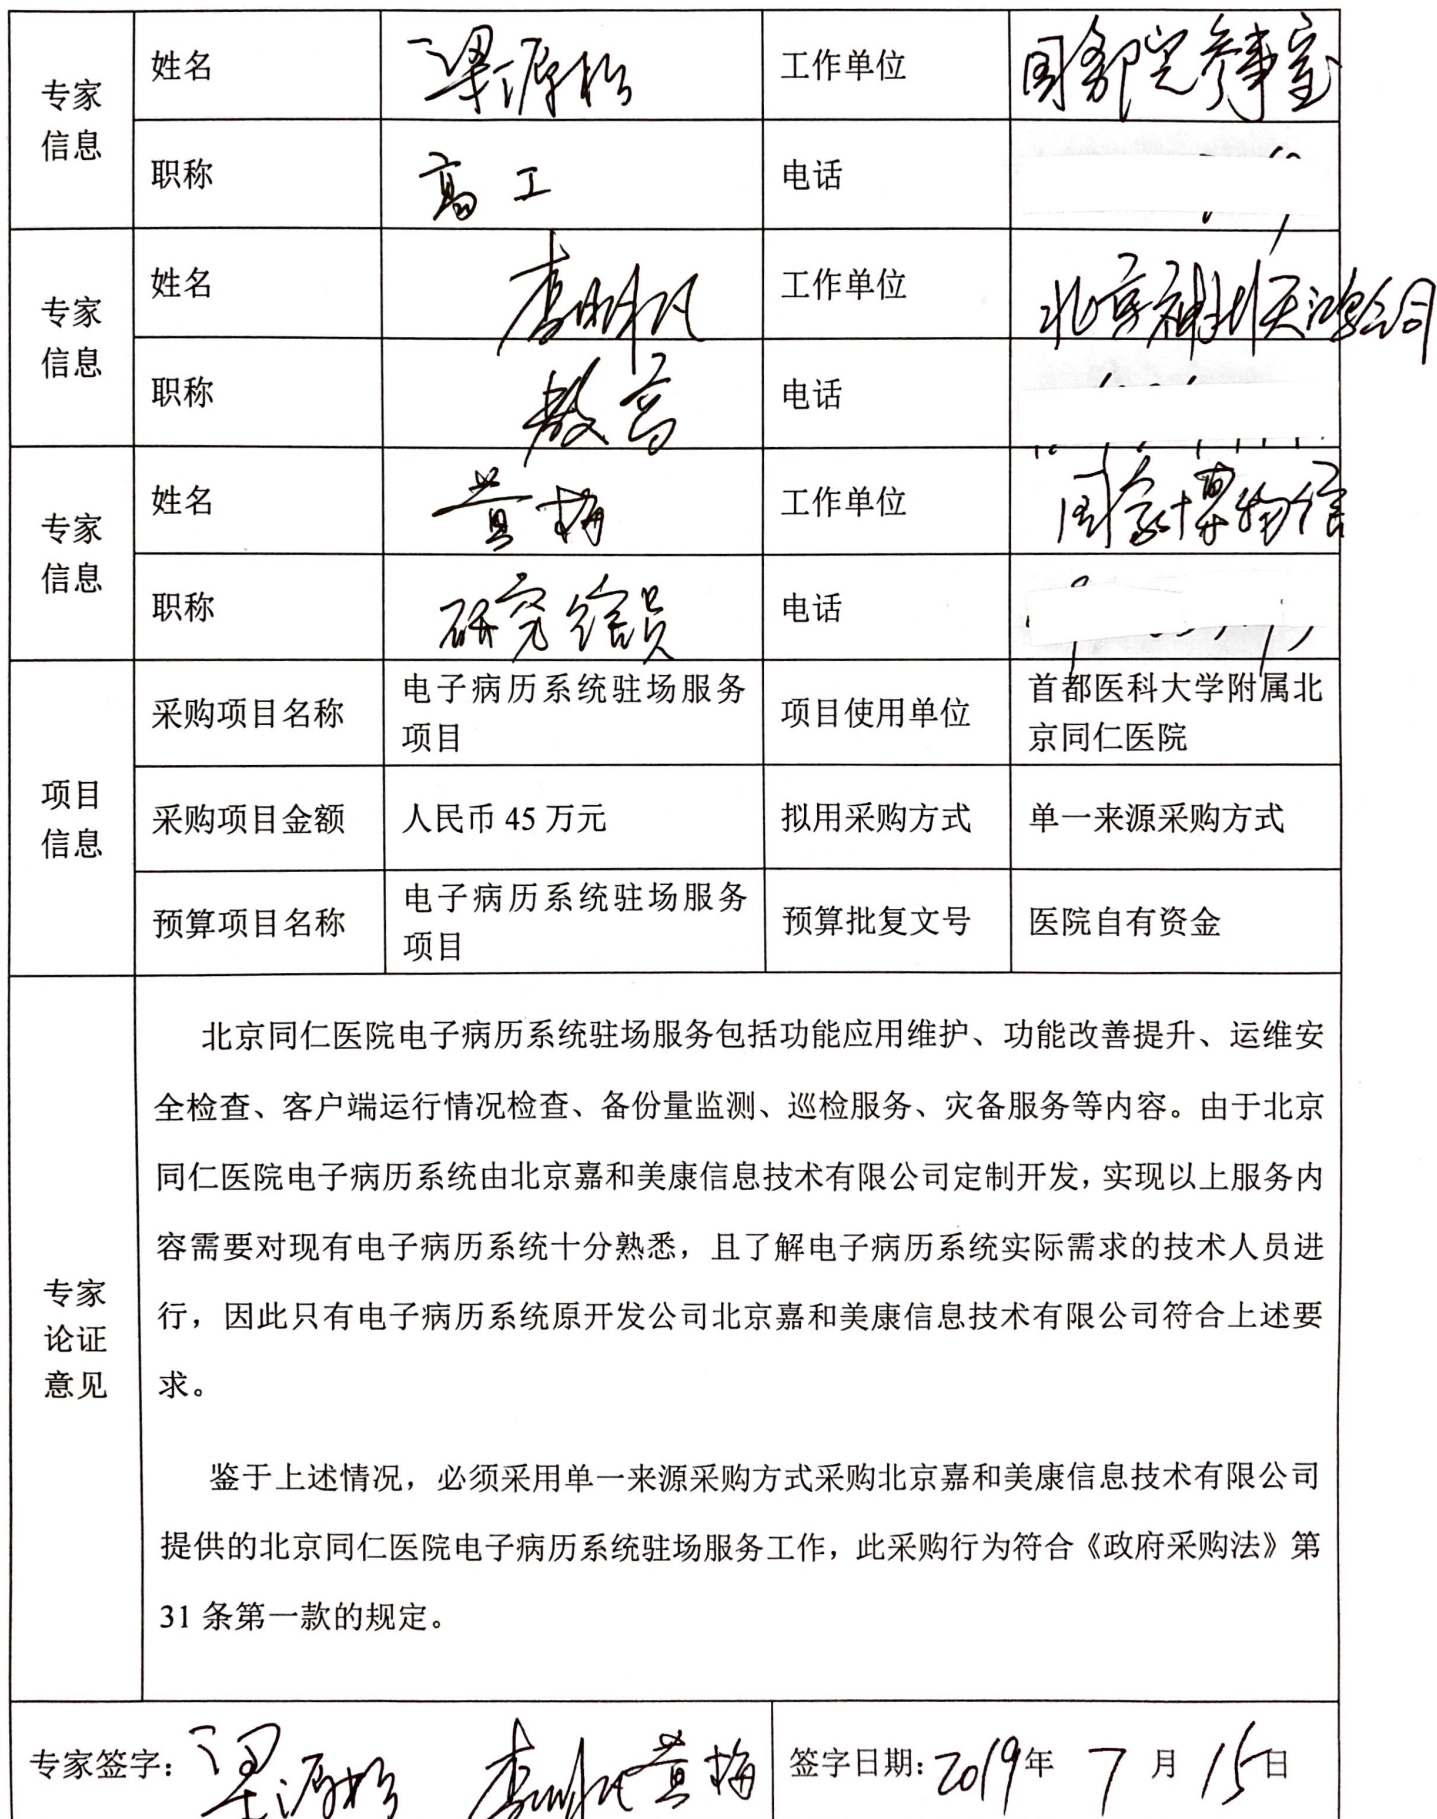 专家信息 姓名 梁源松 工作单位 国务院参事室
职称 高工 电话
专家信息 姓名 工作单位
职称 教高 电话
专家信息 姓名 黄梅 工作单位 国家博物馆
职称 研究馆员 电话
项目信息 采购项目名称 电子病历系统驻场服务项目 项目使用单位 首都医科大学附属北京同仁医院
采购项目金额 人民币 45 万元 拟用采购方式 单一来源采购方式
预算项目名称 电子病历系统驻场服务项目 预算批复文号 医院自有资金
专家论证意见
北京同仁医院电子病历系统驻场服务包括功能应用维护、功能改善提升、运维安
全检查、客户端运行情况检查、备份量监测、巡检服务、灾备服务等内容。由于北京
同仁医院电子病历系统由北京嘉和美康信息技术有限公司定制开发，实现以上服务内
容需要对现有电子病历系统十分熟悉，且了解电子病历系统实际需求的技术人员进
行，因此只有电子病历系统原开发公司北京嘉和美康信息技术有限公司符合上述要
求。
鉴于上述情况，必须采用单一来源采购方式采购北京嘉和美康信息技术有限公司
提供的北京同仁医院电子病历系统驻场服务工作，此采购行为符合《政府采购法》第
31 条第一款的规定。
专家签字：梁源松 黄梅 签字日期：2019年 7 月 15日